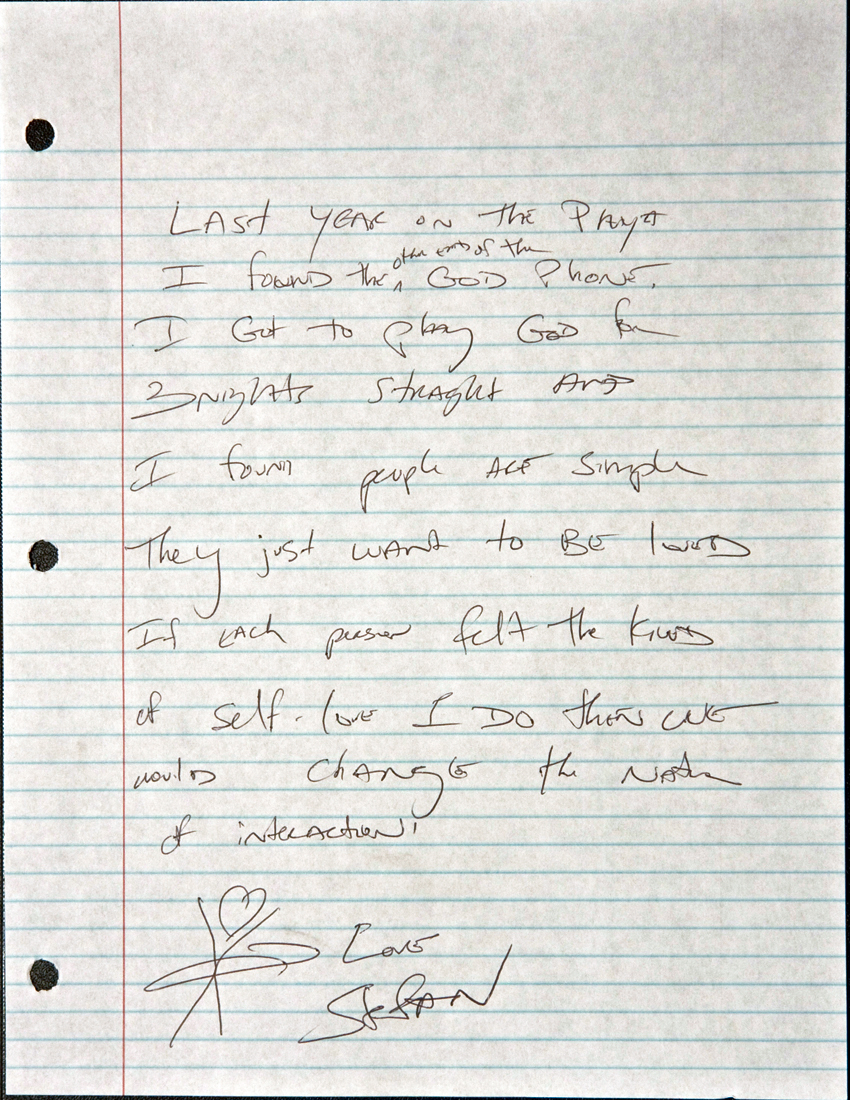 LAST YEAR ON THE PLAYA
I FOUND the other end of the GOD PhONE.
I Got to play GOD for
3 nights STRAGht AND
I found people ARE Simple
They just WANT to BE loved
If EACh person felt the KIND
of Self-love I DO thEN WE
would ChANGE the NATure
of interaction!
Love
STEFAN